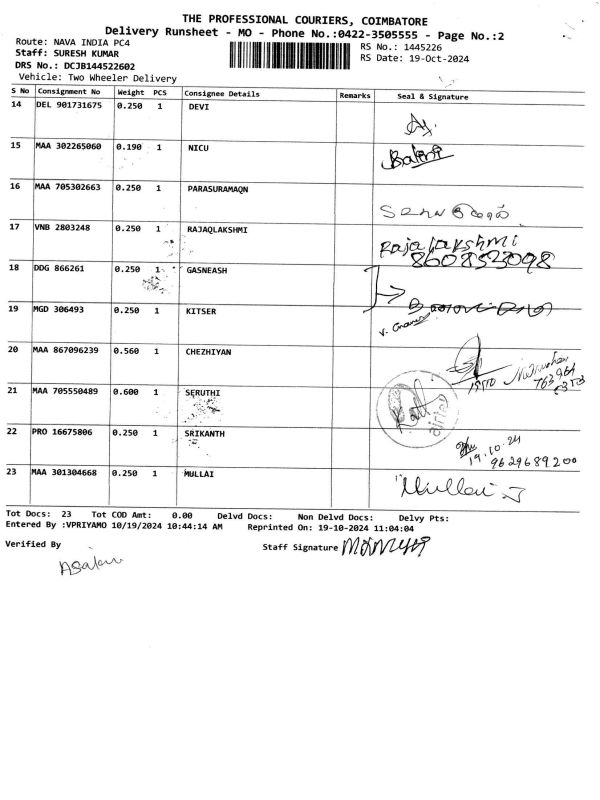 THE PROFESSIONAL COURIERS, COIMBATORE
Delivery Runsheet - MO - Phone No.:0422-3505555 - Page No.:2
Route: NAVA INDIA PC4
RS No.: 1445226
Staff: SURESH KUMAR
RS Date: 19-Oct-2024
DRS No.: DCJB144522602
Vehicle: Two Wheeler Delivery
S No Consignment No Weight PCS Consignee Details Remarks Seal & Signature
14 DEL 901731675 0.250 1 DEVI
15 MAA 302265060 0.190 1 NICU
16 MAA 705302663 0.250 1 PARASURAMAQN
17 VNB 2803248 0.250 1 RAJAQLAKSHMI Raja lakshmi
8608523098
18 DDG 866261 0.250 1 GASNEASH
19 MGD 306493 0.250 1 KITSER
20 MAA 867096239 0.560 1 CHEZHIYAN
21 MAA 705550489 0.600 1 SERUTHI
22 PRO 16675806 0.250 1 SRIKANTH 19.10.24
9629689200
23 MAA 301304668 0.250 1 MULLAI Mullai J
Tot Docs: 23 Tot COD Amt: 0.00 Delvd Docs: Non Delvd Docs: Delvy Pts:
Entered By :VPRIYAMO 10/19/2024 10:44:14 AM Reprinted On: 19-10-2024 11:04:04
Verified By Staff Signature